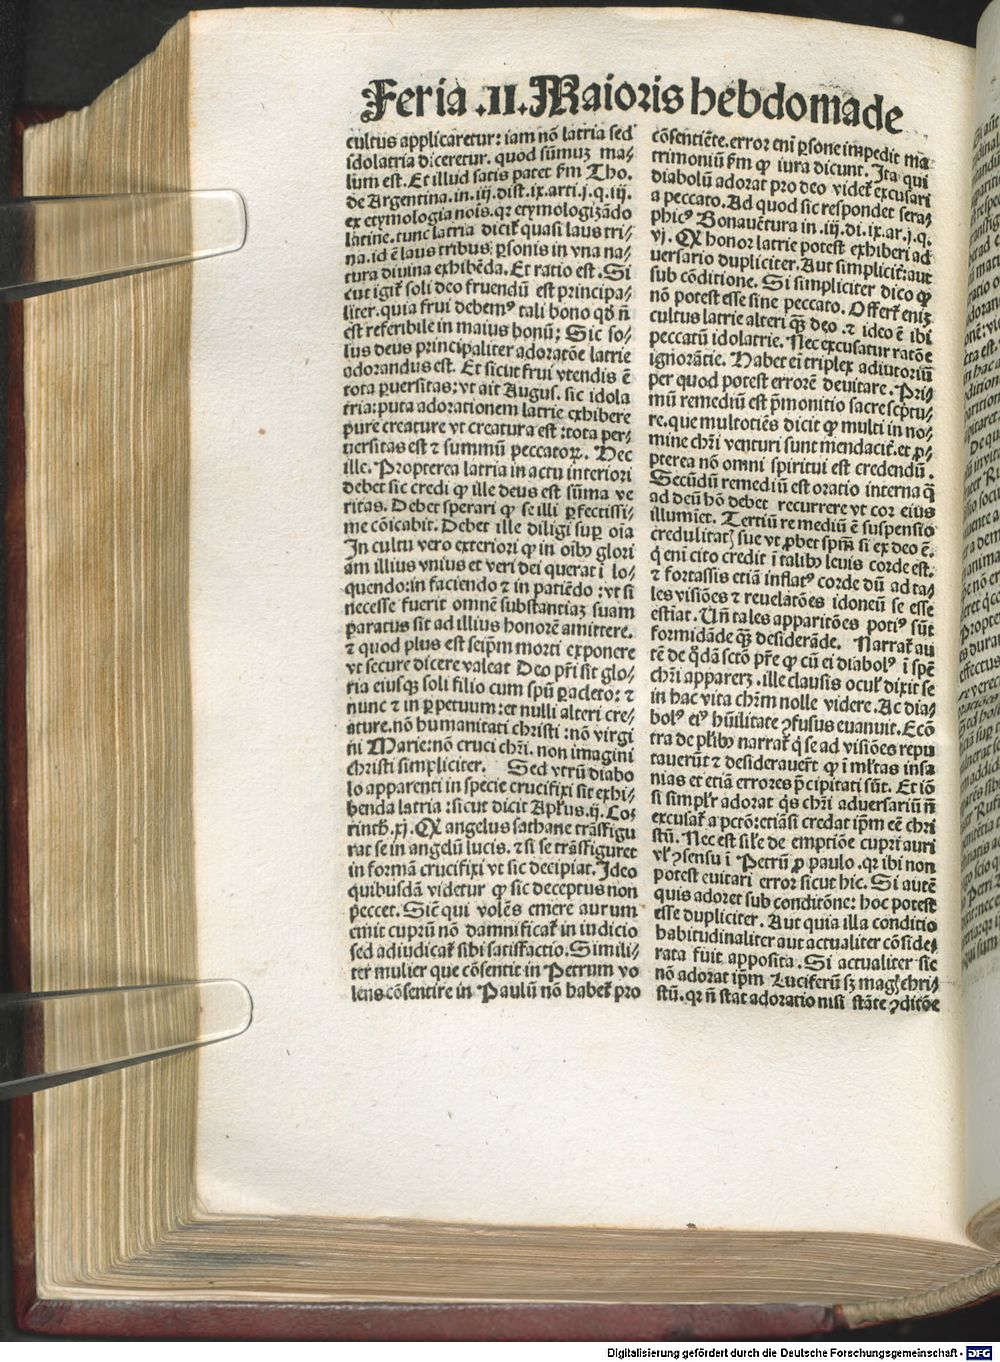 Feria .II. Maioris hebdomade
cultus applicaretur: iam nõ latria sed
idolatria diceretur. quod sũmuʒ ma⸗
lum est. Et illud satis patet ẜm Tho.
de Argentina. in .iij. dist. ix. arti. j. q. iij.
ex etymologia nois. qꝛ etymologizãdo
latine. tunc latria dicit᷑ quasi laus tri⸗
na. id ẽ laus tribus ꝑsonis in vna na⸗
tura diuina exhibẽda. Et ratio est. Si
cut igit᷑ soli deo fruendũ est principa⸗
liter. quia frui debemꝰ tali bono qđ ñ
est referibile in maius bonũ; Sic so⸗
lus deus principaliter adoratõe latrie
adorandus est. Et sicut frui vtendis ẽ
tota ꝑuersitas: vt ait Augus. sic idola
tria: puta adorationem latrie exhibere
pure creature vt creatura est: tota per⸗
uersitas est ⁊ summũ peccatoꝝ. Hec
ille. Propterea latria in actu interiori
debet sic credi ꝙ ille deus est sũma ve
ritas. Debet sperari ꝙ se illi ꝑfectissi⸗
me cõicabit. Debet ille diligi suꝑ oĩa
In cultu vero exteriori ꝙ in oibꝰ glori
am illius vnius et veri dei querat ĩ lo⸗
quendo: in faciendo ⁊ in patiẽdo: vt si
necesse fuerit omnẽ substantiaʒ suam
paratus sit ad illius honorẽ amittere.
⁊ quod plus est seipm̃ morti exponere
vt secure dicere valeat Deo pr̃i sit glo⸗
ria eiusqꝫ soli filio cum spũ paracleto: ⁊
nunc ⁊ in ꝑpetuum: et nulli alteri cre⸗
ature. nõ humanitati christi: nõ virgi
ni Marie: nõ cruci chr̃i. non imagini
christi simpliciter. Sed vtrũ diabo
lo apparenti in specie crucifixi sit exhi⸗
benda latria: sicut dicit Apl̃us. ij. Co⸗
rinth. xj. Qꝫ angelus sathane trãsfigu
rat se in angelũ lucis. ⁊ si se trãsfiguret
in formã crucifixi vt sic decipiat. Ideo
quibusdã videtur ꝙ sic deceptus non
peccet. Sic̃ qui volẽs emere aurum
emit cuprũ nõ damnificat᷑ in iudicio
sed adiudicat᷑ sibi satisfactio. Simili⸗
ter mulier que cõsentit in Petrum vo
lens cõsentire in Paulũ nõ habet᷑ pro
cõsentiẽte. error eni ꝑsone impedit ma
trimoniũ ẜm ꝙ iura dicunt. Ita qui
diabolũ adorat pro deo videt᷑ excusari
a peccato. Ad quod sic respondet sera⸗
phicꝰ Bonauẽtura in .iij. di. ix. ar. j. q.
vj. Qꝫ honor latrie potest exhiberi ad
uersario dupliciter. Aut simplicit᷑: aut
sub cõditione. Si simpliciter dico ꝙ
nõ potest esse sine peccato. Offert᷑ eniʒ
cultus latrie alteri qꝫ deo. ⁊ ideo ẽ ibi
peccatũ idolatrie. Nec excusatur ratõe
ignorãtie. Habet eĩ triplex adiutoriũ
per quod potest errorẽ deuitare. Pri⸗
mũ remediũ est p̃monitio sacre scptu⸗
re. que multotiẽs dicit ꝙ multi in no⸗
mine chr̃i venturi sunt mendacit᷑. et ꝓ⸗
pterea nõ omni spiritui est credendũ.
Secũdũ remediũ est oratio interna q̃
ad deũ hõ debet recurrere vt cor eius
illumiet. Tertiũ remediũ ẽ suspensio
credulitatꝭ sue vt ꝓbet spm̃ si ex deo ẽ.
q̇ eni cito credit ĩ talibꝰ leuis corde est.
⁊ fortassis etiã inflatꝰ corde dũ ad ta⸗
les visiões ⁊ reuelatões idoneũ se esse
estĩat. Vñ tales apparitões potiꝰ sũt
formidãde qꝫ desiderãde. Narrat᷑ au
tẽ de q̇dã sctõ pr̃e ꝙ cũ ei diabolꝰ ĩ spẽ
chr̃i apparerʒ. ille clausis ocul᷑ dixit se
in hac vita chr̃m nolle videre. Ac dia⸗
bolꝰ eiꝰ hũilitate ꝯfusus euanuit. Ecõ
tra de pl᷑ibꝰ narrat᷑ q̇ se ad visiões repu
tauerũt ⁊ desiderauer̃t ꝙ ĩ ml᷑tas insa
nias et etiã errores p̃cipitati sũt. Et iõ
si simpl᷑r adorat q̇s chr̃i aduersariũ ñ
excusat᷑ a pctõ: etiãsi credat ip̃m eẽ chri
stũ. Nec est sil᷑e de emptiõe cupri auri
vl᷑ ꝯsensu ĩ Petrũ ꝓ paulo. qꝛ ibi non
potest euitari error sicut hic. Si autẽ
quis adoret sub conditõne: hoc potest
esse dupliciter. Aut quia illa conditio
habitudinaliter aut actualiter cõside⸗
rata fuit apposita. Si actualiter sic
nõ adorat ip̃m Luciferũ sʒ mag᷑ chri⸗
stũ. qꝛ ñ stat adoratio nisi stãte ꝯditõe
Digitalisierung gefördert durch die Deutsche Forschungsgemeinschaft - DFG